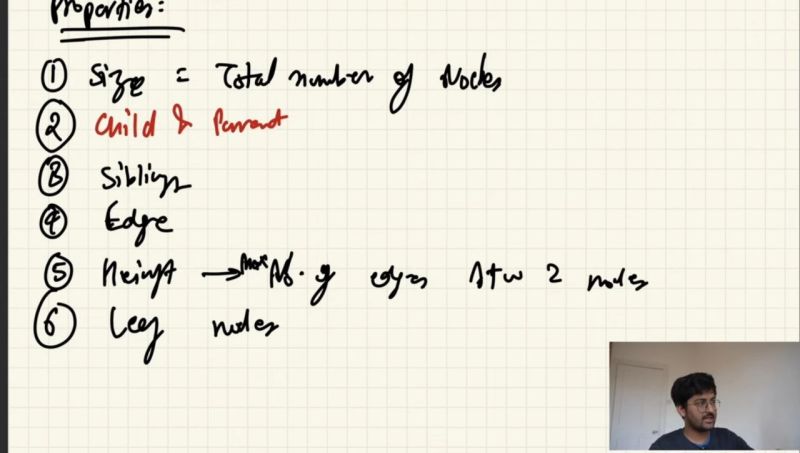 Properties:
① Size = Total number of Nodes
② Child & Parent
③ Siblings
④ Edge
⑤ Height → Max No. of edges btw 2 nodes
⑥ Leaf nodes